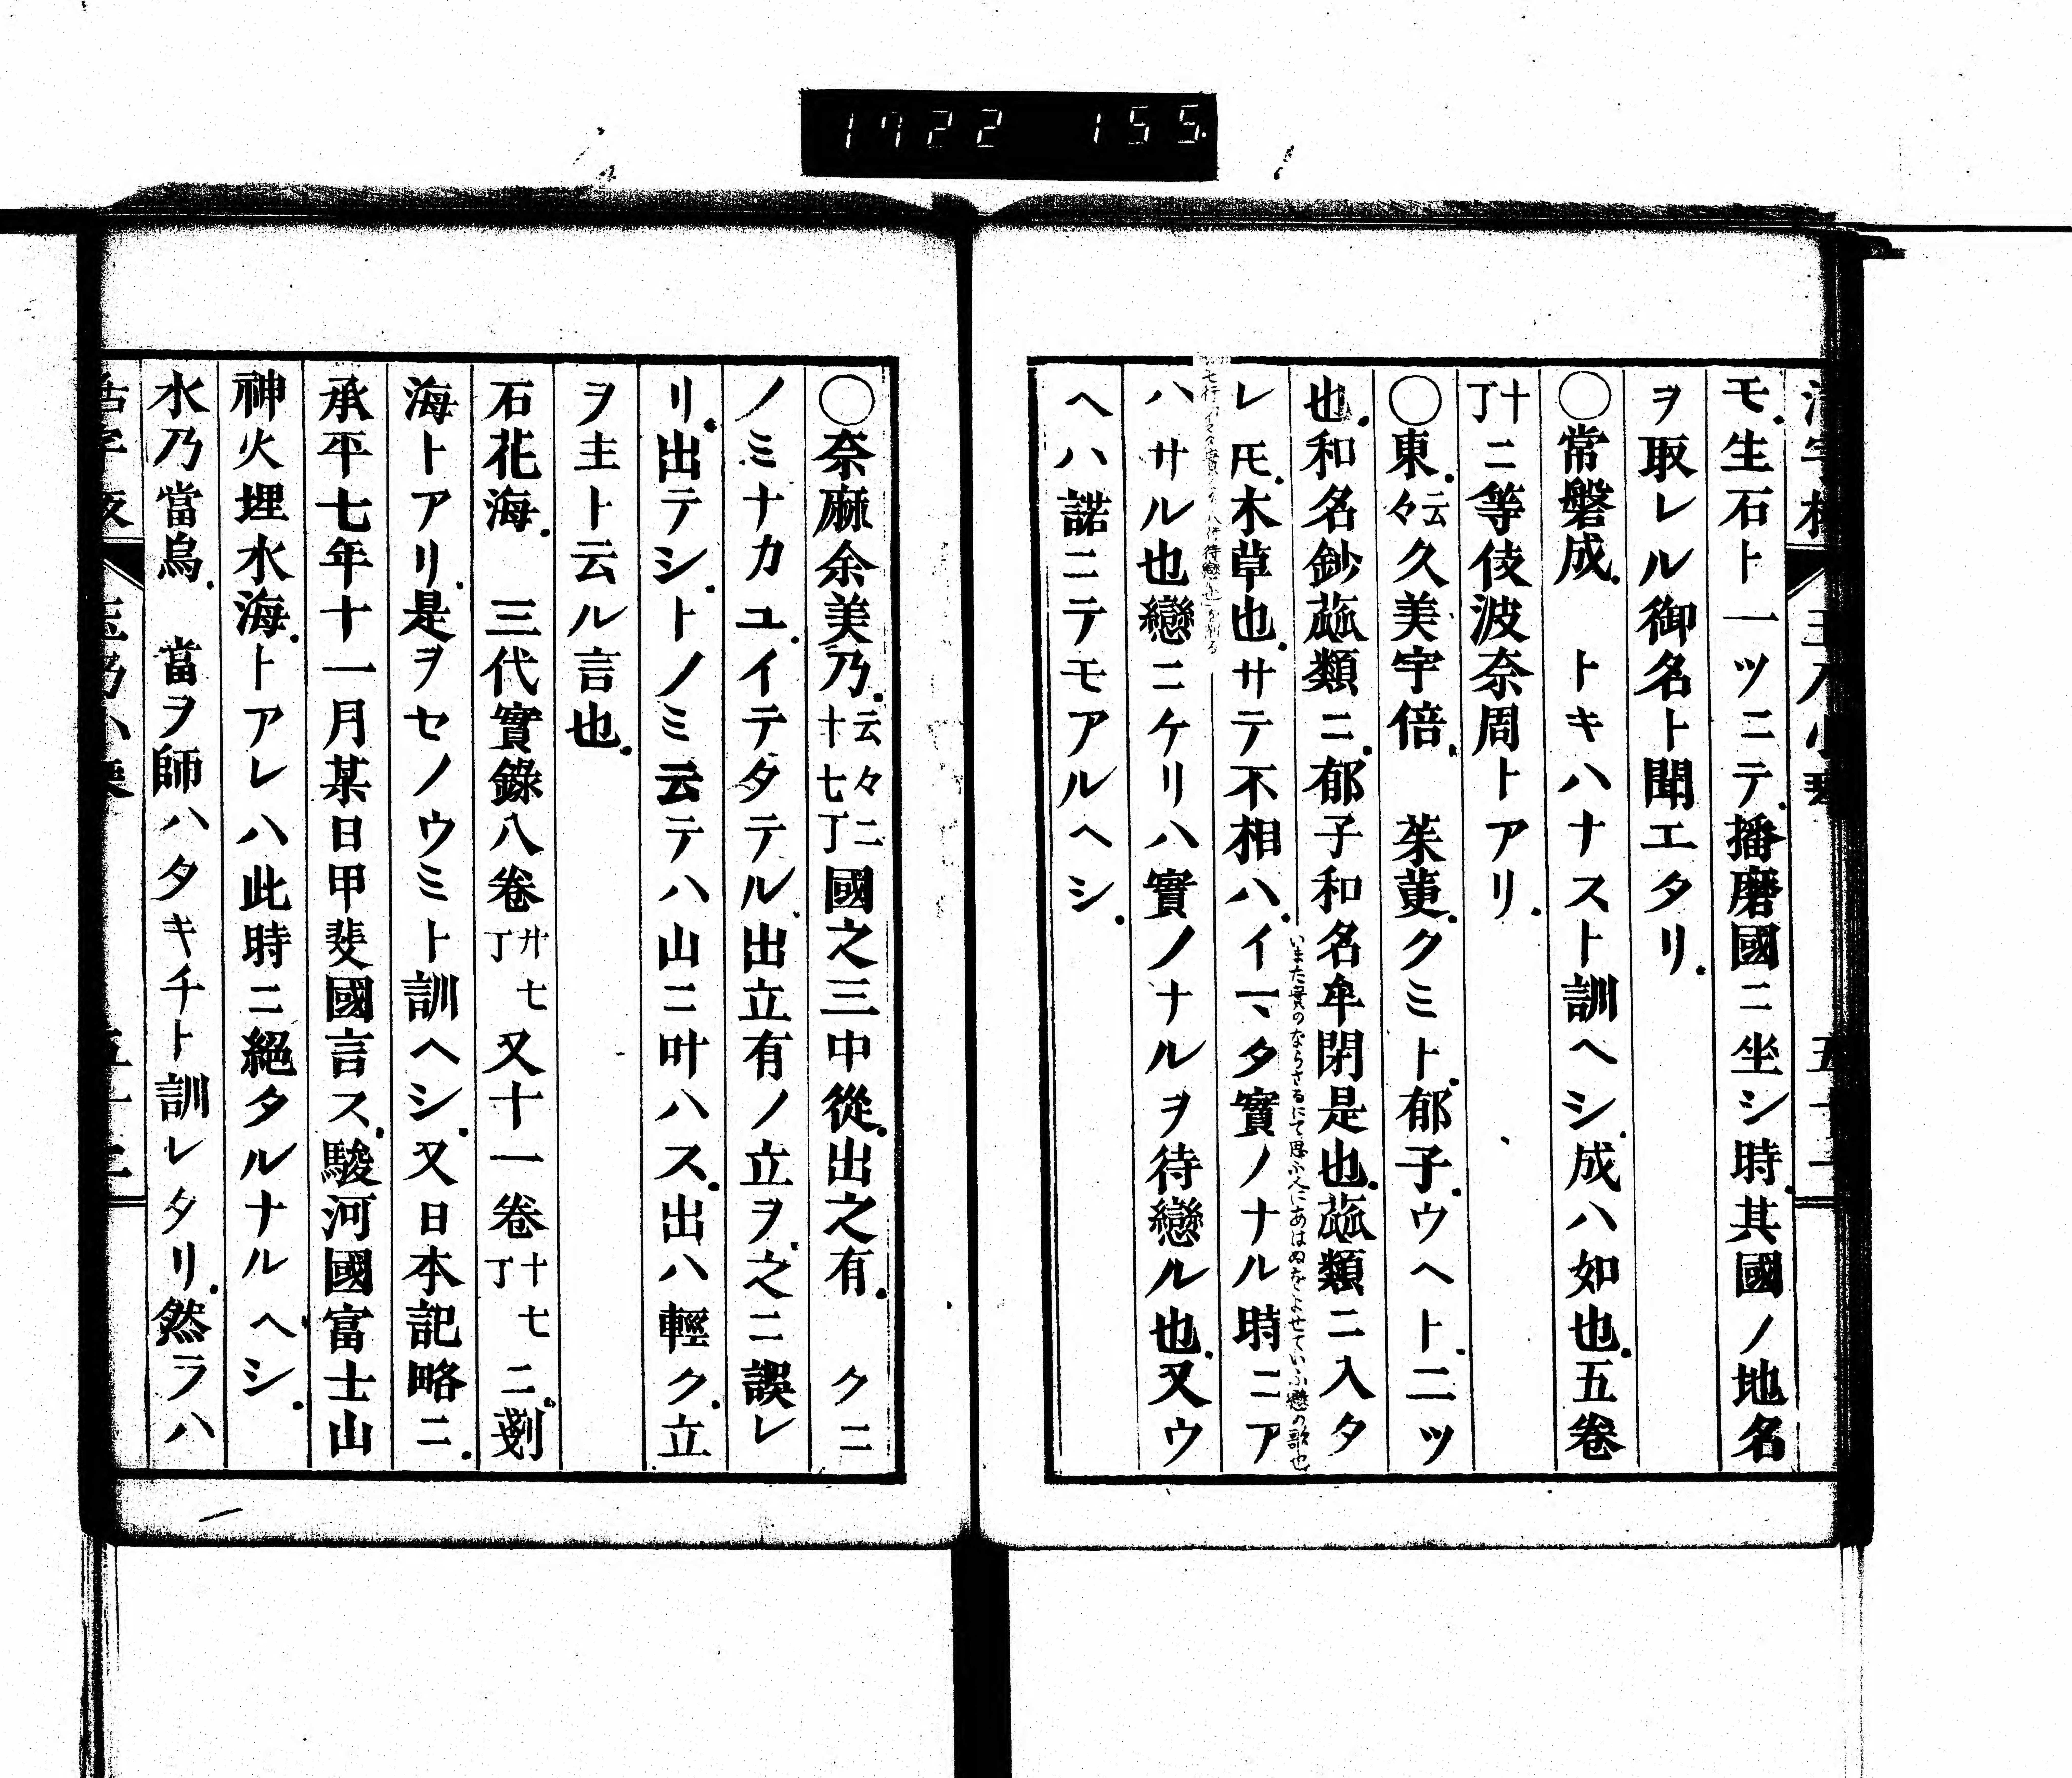 1722 155
モ生石ト一ツニテ播磨國ニ坐シ時其國ノ地名
ヲ取レル御名ト聞エタリ
○常磐成 トキハナスト訓ヘシ成ハ如也五卷
十丁ニ等伎波奈周トアリ
○東云々久美宇倍 茱萸クミト郁子ウヘト二ツ
也和名鈔蓏類ニ郁子和名牟閉是也蓏類ニ入タ
いまた實のならさるにて思ふ人にあはぬをよせていふ戀の歌也
レ𪜈木草也サテ不相ハイマタ實ノナル時ニア
ハサル也戀ニケリハ實ノナルヲ待戀ル也又ウ
ヘハ諾ニテモアルヘシ
○奈麻余美乃云々二十七丁國之三中從出之有 クニ
ノミナカユイテタテル出立有ノ立ヲ之ニ誤レ
リ出テシトノミ云テハ山ニ叶ハス出ハ輕ク立
ヲ主ト云ル言也
石花海 三代實錄八卷廿七丁又十一卷十七丁ニ剗
海トアリ是ヲセノウミト訓ヘシ又日本記略ニ
承平七年十一月某日甲斐國言ス駿河國富士山
神火埋水海トアレハ此時ニ絕タルナルヘシ
水乃當烏 當ヲ師ハタキチト訓レタリ然ラハ